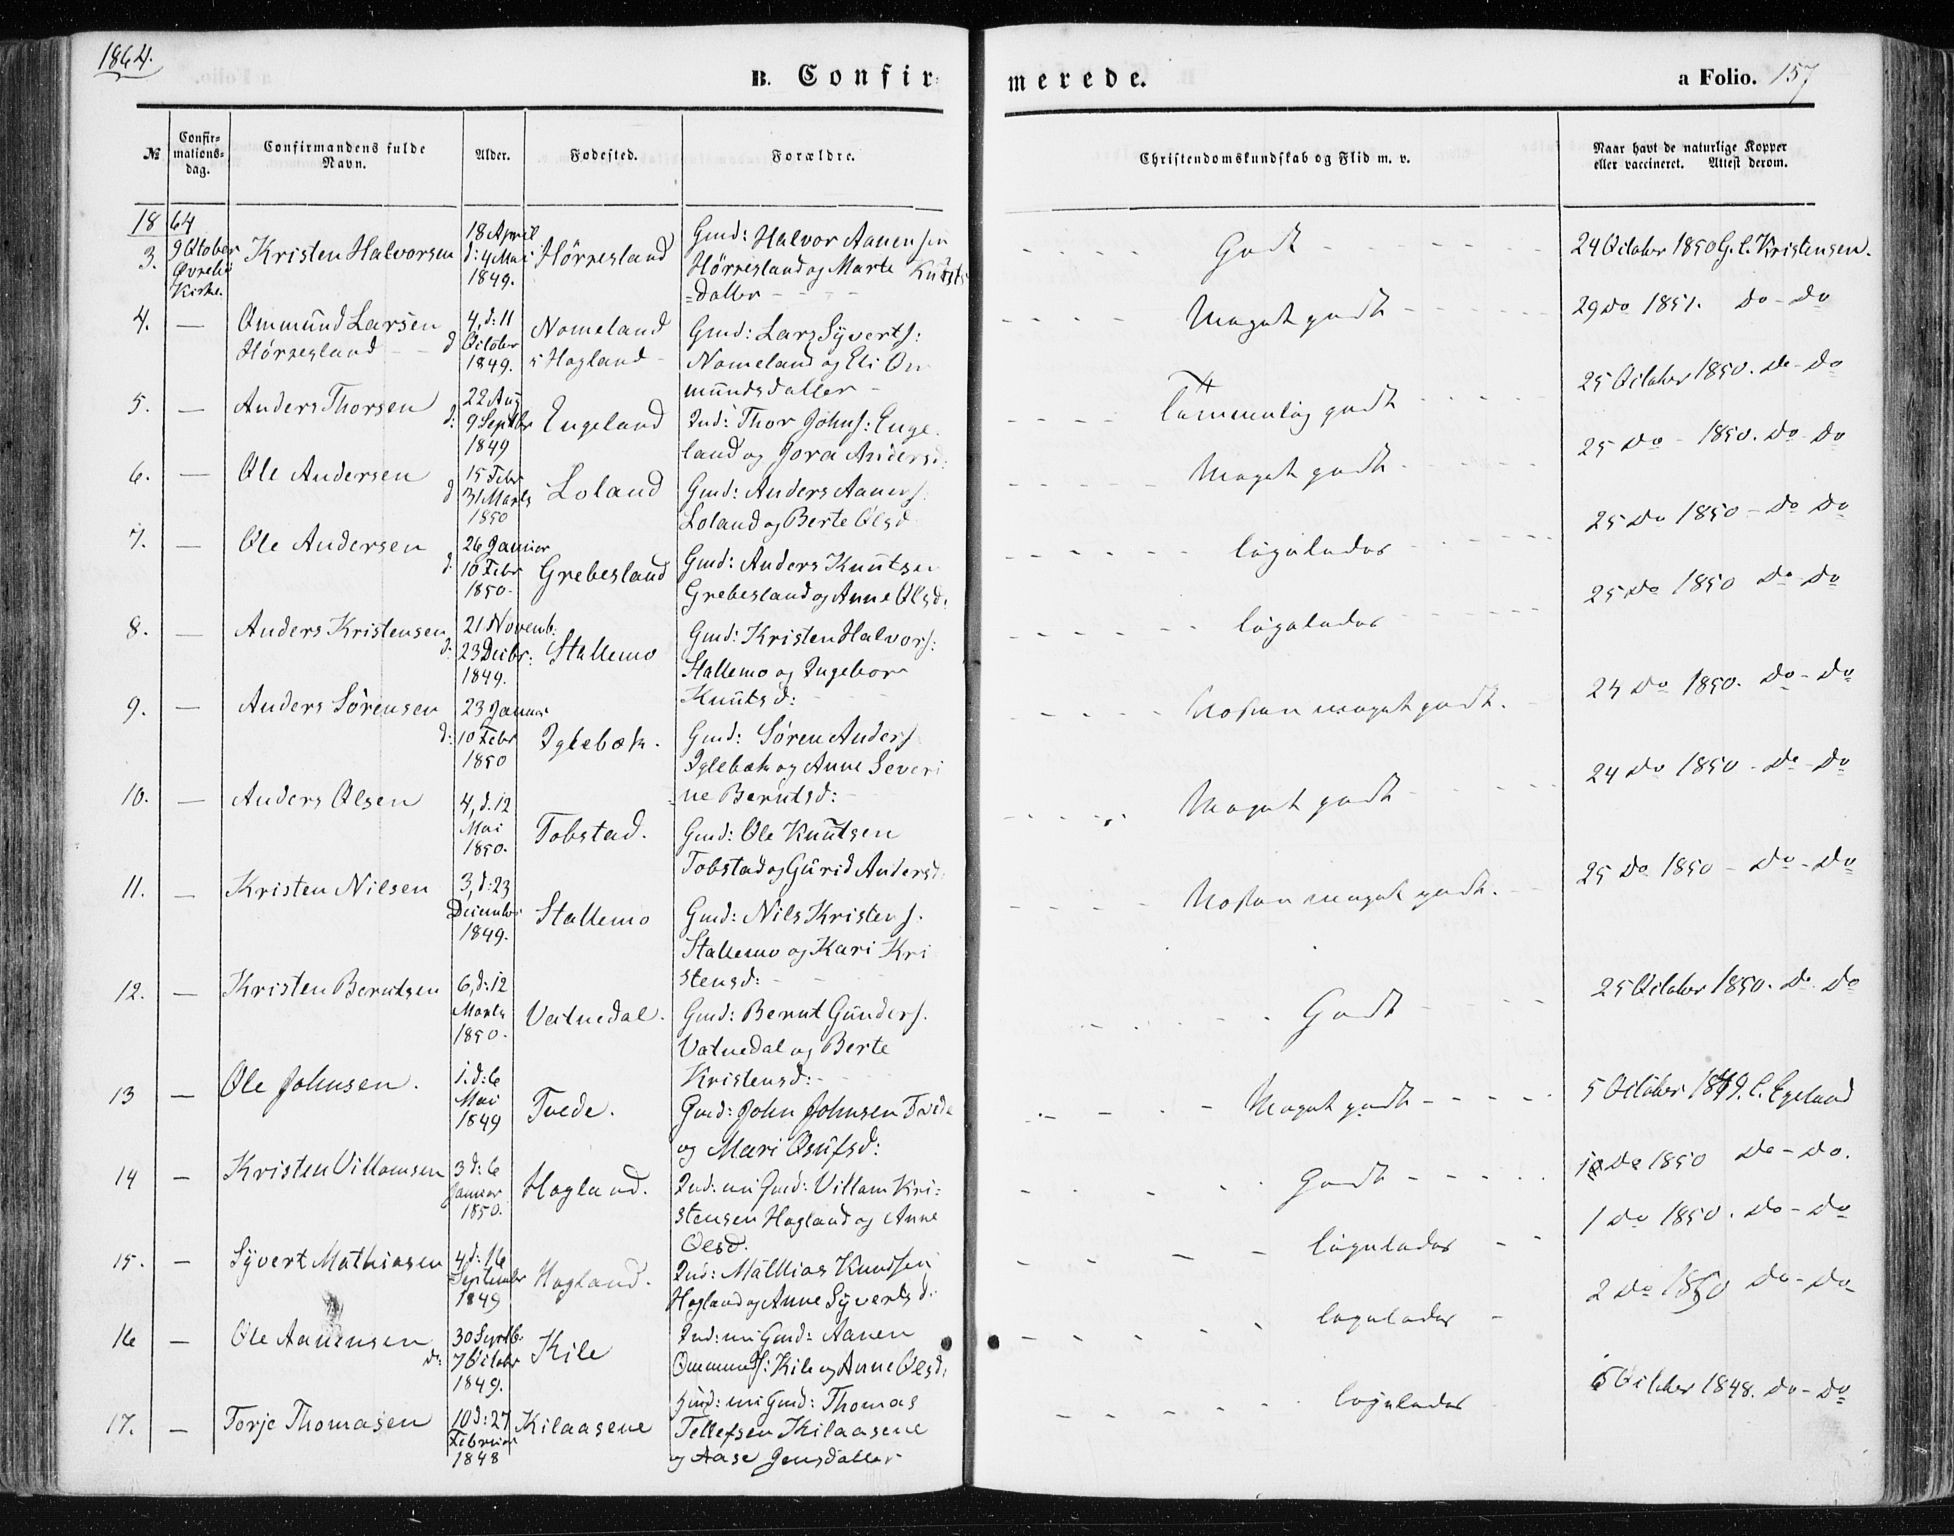 1864.
B. Confir-
merede.
a Folio. 157
№
Confir-
mations-
dag.
Confirmandens fulde
Navn.
Alder.
Fødested.
Forældre.
Christendomskundskab og Flid m. v.
Naar havt de naturlige Kopper
eller vaccineret. Attest derom.
1864
3. 9 October Øvrebø Kirke. Kristen Halvorsen 18 April d: 4 Mai 1849. Hörresland
Gmd: Halvor Aanensen
Hörresland og Marte Knuts
=datter
Godt
24 October 1850 G. C. Kristensen.
4. — Ommund Larsen Hörresland 4, d: 11 October 1849. Nomeland i Hogland
Gmd: Lars Syverts:
Nomeland og Eli Om
mundsdatter
Meget godt
29 Do 1851. Do - Do
5. — Anders Thorsen 22 Aug d: 9 Septbr 1849 Engeland
Ind: Thor Johns: Enge
land og Jora Andersd:
Temmelig godt
25 October 1850. Do - Do
6. — Ole Andersen 15 Febr d 31 Marts 1850 Loland
Gmd: Anders Aanens.
Loland og Berte Olsd
Meget godt
25 Do - 1850. Do Do
7. — Ole Andersen 26 Januar d: 10 Febr 1850. Grebesland
Gmd: Anders Knutsen
Grebesland og Anne Olsd:
ligeledes
25 Do 1850 - Do Do
8. — Anders Kristensen 21 Novemb: d: 23 Decbr: 1849. Stallemo
Gmd: Kristen Halvors:
Stallemo og Ingebor
Knutsd:
ligeledes
25 Do 1850 Do - Do
9. — Anders Sörensen 23 Januar d: 10 Febr 1850 Iglebæk.
Gmd: Sören Anders
Iglebæk og Anne Severi
ne Berntsd:
Næsten meget godt.
24 Do 1850. Do - Do
10. — Anders Olsen 4, d. 12 Mai 1850. Tobstad.
Gmd: Ole Knutsen
Tobstad og Gurid Andersd:
Meget godt
24 Do 1850 - Do - Do
11. — Kristen Nilsen 3, d: 23 December 1849. Stallemo
Gmd: Nils Kristens.
Stallemo og Kari Kri
stensd:
Næsten meget godt.
25 Do 1850 - Do - Do
12. — Kristen Berntsen 6, d: 12 Marts 1850. Vatnedal.
Gmd: Bernt Gunders.
Vatnedal og Berte
Kristensd:
Godt
25 October 1850. Do Do
13 — Ole Johnsen. 1. d: 6 Mai 1849 Tvede.
Gmd: John Johnsen Tvede
og Mari Osufsd:
Meget godt
5 October C. Egeland
14 — Kristen Villamsen 3 d: 6 Januar 1850. Hogland.
Ind: Gmd: Villam Kri=
stensen Hogland og Anne
Olsd.
Godt
Do 1850 Do - Do.
15. — Syvert Mathiasen 4 d: 16 September 1849 Hogland.
Ind: Mathias Knudsen
Hogland og Anne Syvertsd:
ligeledes
1 Do 1850. Do - Do
16 — Ole Aanensen 30 Septb. d: 7 October 1849. Kile
Ind: Gmd: Aanen
Ommunds: Kile og Anne Olsd:
ligeledes
2 Do 1850 Do - Do
17. — Torje Thomasen 10 d: 27 Februar 1848 Kilaasene
Gmd: Thomas
Tellefsen Kilaasene
og Aase Jensdatter
ligeledes
5 October 1848. Do - Do